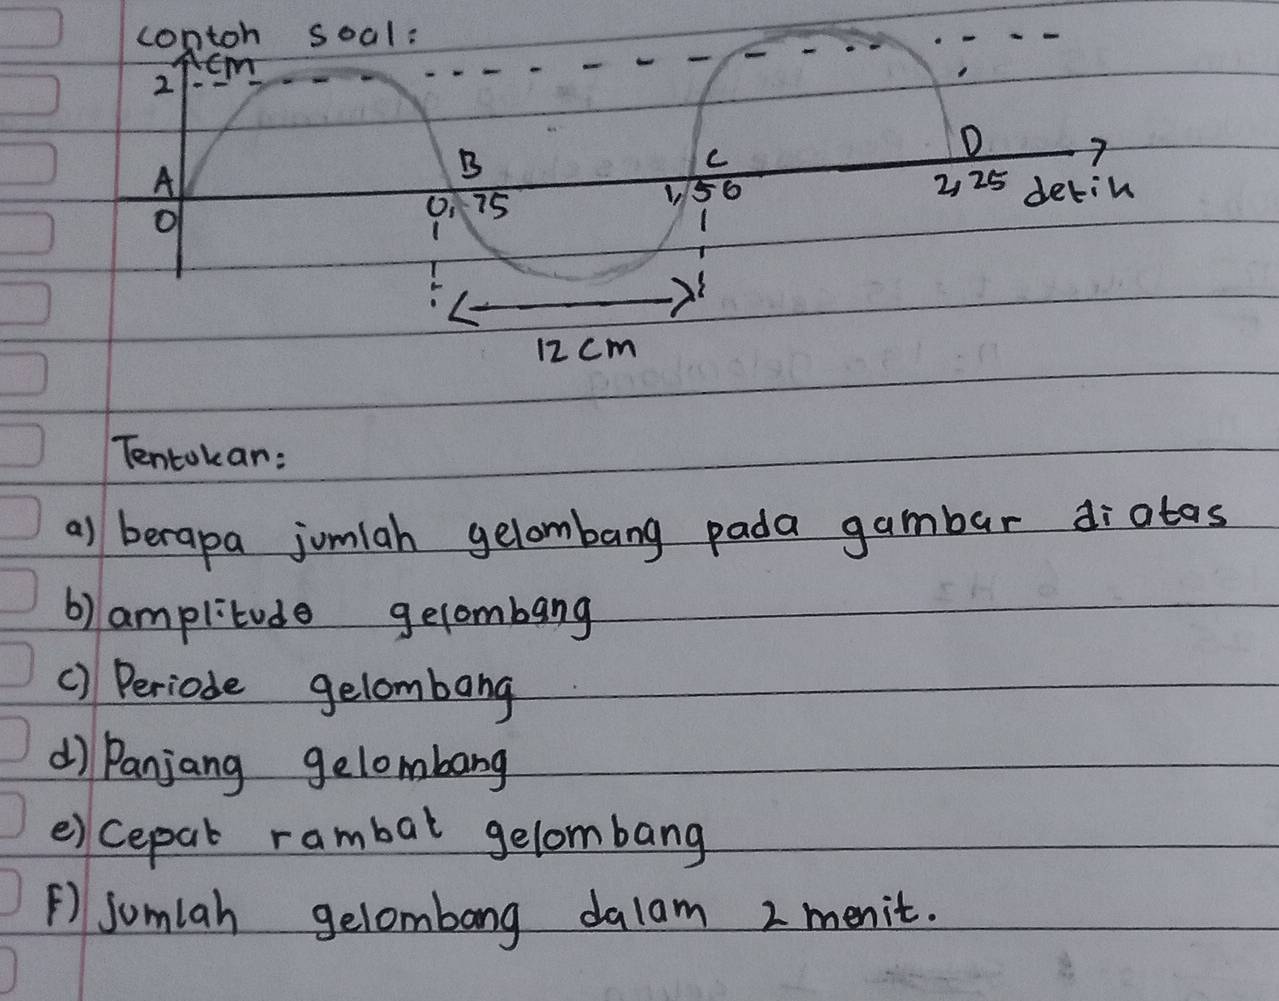 contoh soal:
cm
2
A
B
C
D
0
0,75
1,50
2,25 detik
12 cm
Tentukan:
a) berapa jumlah gelombang pada gambar di atas
b) amplitudo gelombang
c) Periode gelombang
d) Panjang gelombang
e) Cepat rambat gelombang
F) Jumlah gelombang dalam 2 menit.